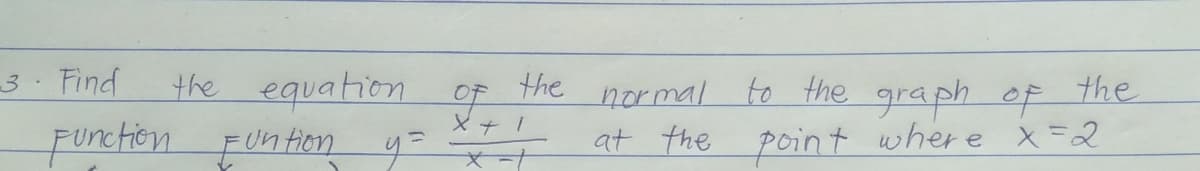 3. Find the equation of the normal to the graph of the
function funtion y = x + 1 / x - 1 at the point where x = 2